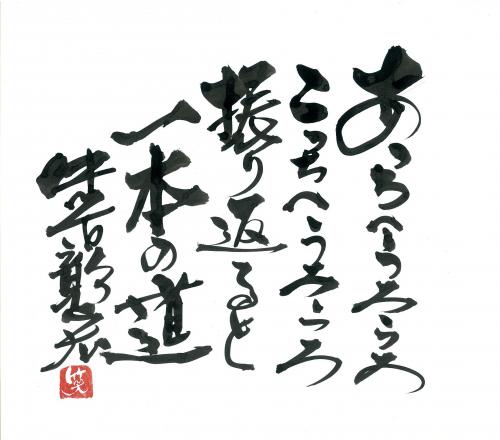 あっちへうろうろ
こっちへうろうろ
振り返ると
一本の道
笑